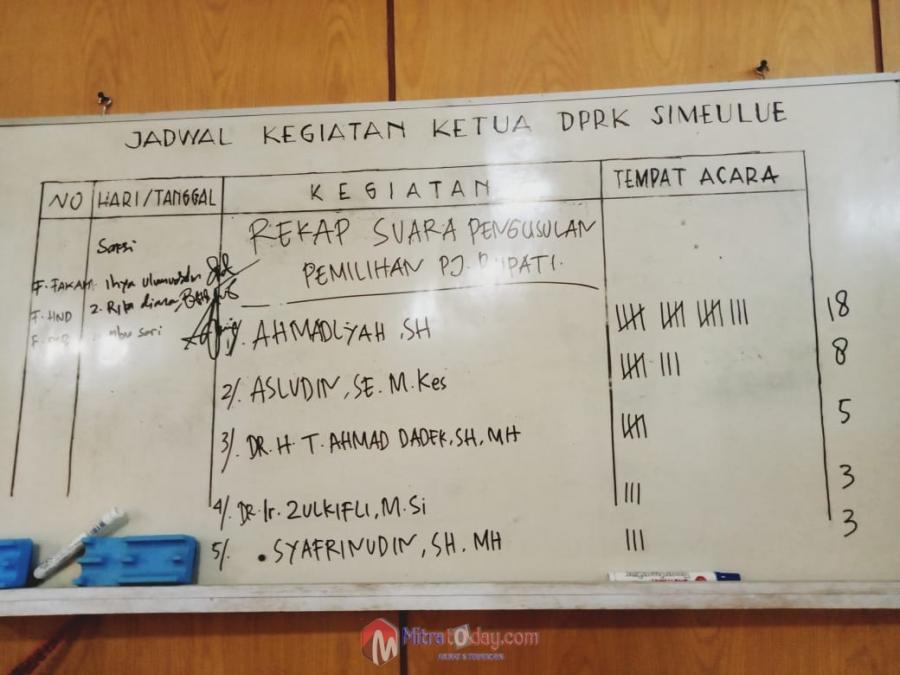 JADWAL KEGIATAN KETUA DPRK SIMEULUE
NO HARI/TANGGAL KEGIATAN TEMPAT ACARA
REKAP SUARA PENGUSULAN
PEMILIHAN PJ. BUPATI.
Saksi
F. FAKAM. Ihya ulumuddin
F. HND 2. Rita diana
sari
1/. AHMADLIYAH, SH 18
2/. ASLUDIN, SE. M.Kes 8
3/. DR. H T. AHMAD DADEK, SH, MH 5
4/. DR. Ir. ZULKIFLI, M.Si 3
5/. SYAFRINUDIN, SH. MH 3
Mitratoday.com